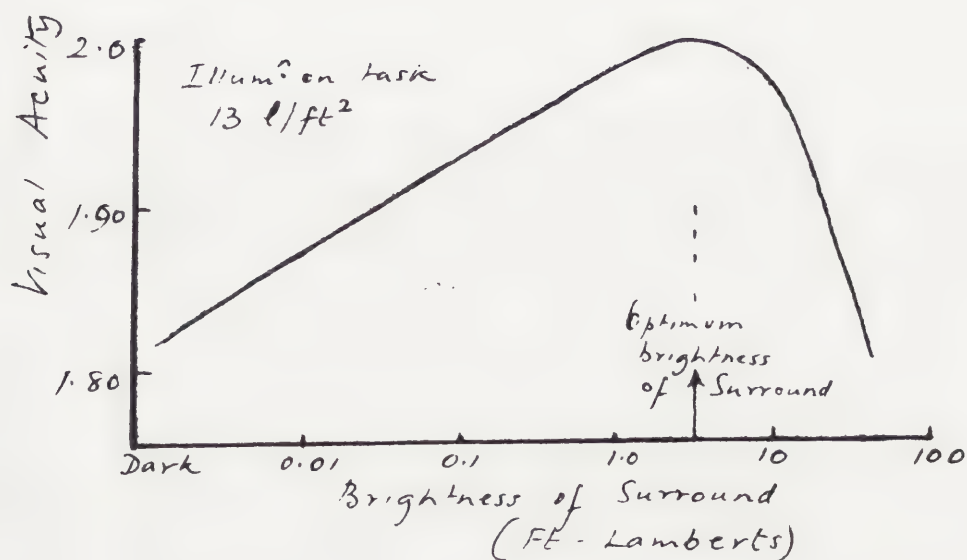 Visual Acuity
2.0
1.90
1.80
Illumⁿ on task
13 l/ft²
Optimum
brightness
of Surround
Dark 0.01 0.1 1.0 10 100
Brightness of Surround
(Ft-Lamberts)